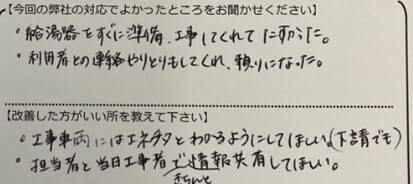 【今回の弊社の対応でよかったところをお聞かせください】
・給湯器をすぐに準備、工事してくれてたすかった。
・利用者との連絡やりとりもしてくれ、頼りになった。
【改善した方がいい所を教えて下さい】
・工事車両にはエネタタとわかるようにしてほしい。(下請でも)
・担当者と当日工事者で情報共有してほしい。
きちんと